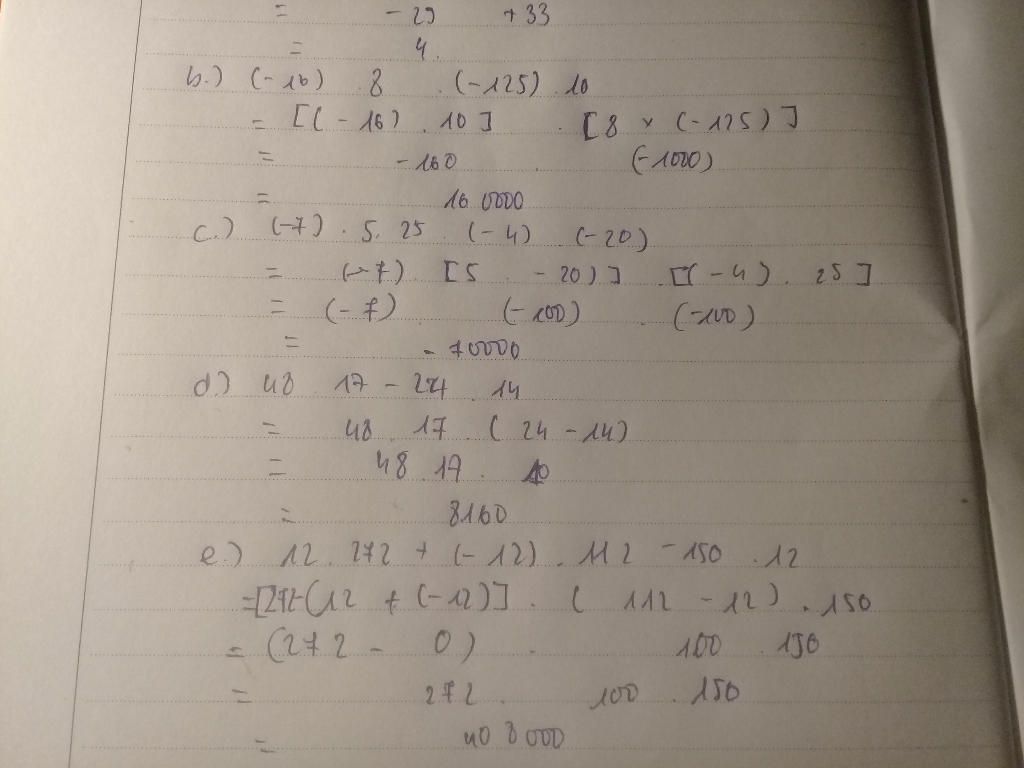 = - 29 + 33
= 4.
b.) (-16) . 8 . (-125) . 10
= [(-16) . 10] . [8 x (-125)]
= -160 . (-1000)
= 160000
c.) (-7) . 5 . 25 . (-4) (-20)
= (-7) . [5 - 20)] . [(-4) . 25]
= (-7) . (-100) . (-100)
= - 70000
d.) 48 . 17 - 24 . 14
= 48 . 17 . (24 - 14)
= 48 . 17 . 10
= 8160
e.) 12 . 272 + (-12) . 112 - 150 . 12
= [272-(12 + (-12)] . ( 112 - 12) . 150
= (272 - 0) . 100 . 150
= 272 . 100 . 150
= 408000